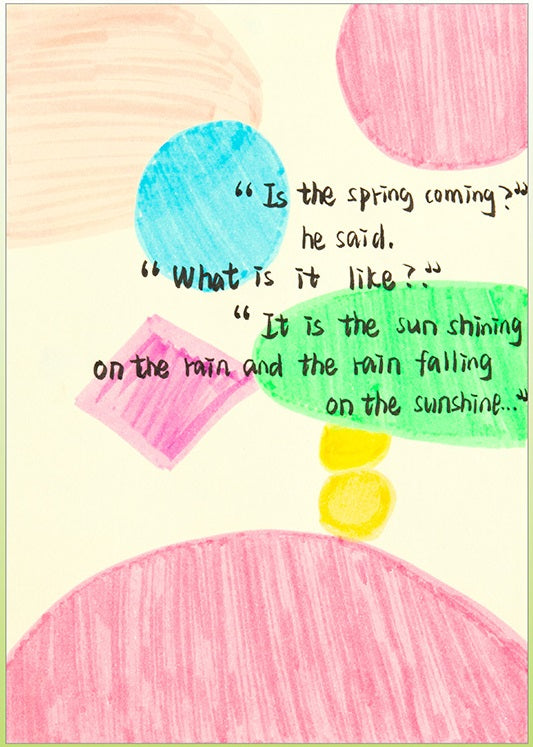 “Is the spring coming?”
he said.
“What is it like?”
“It is the sun shining
on the rain and the rain falling
on the sunshine...”